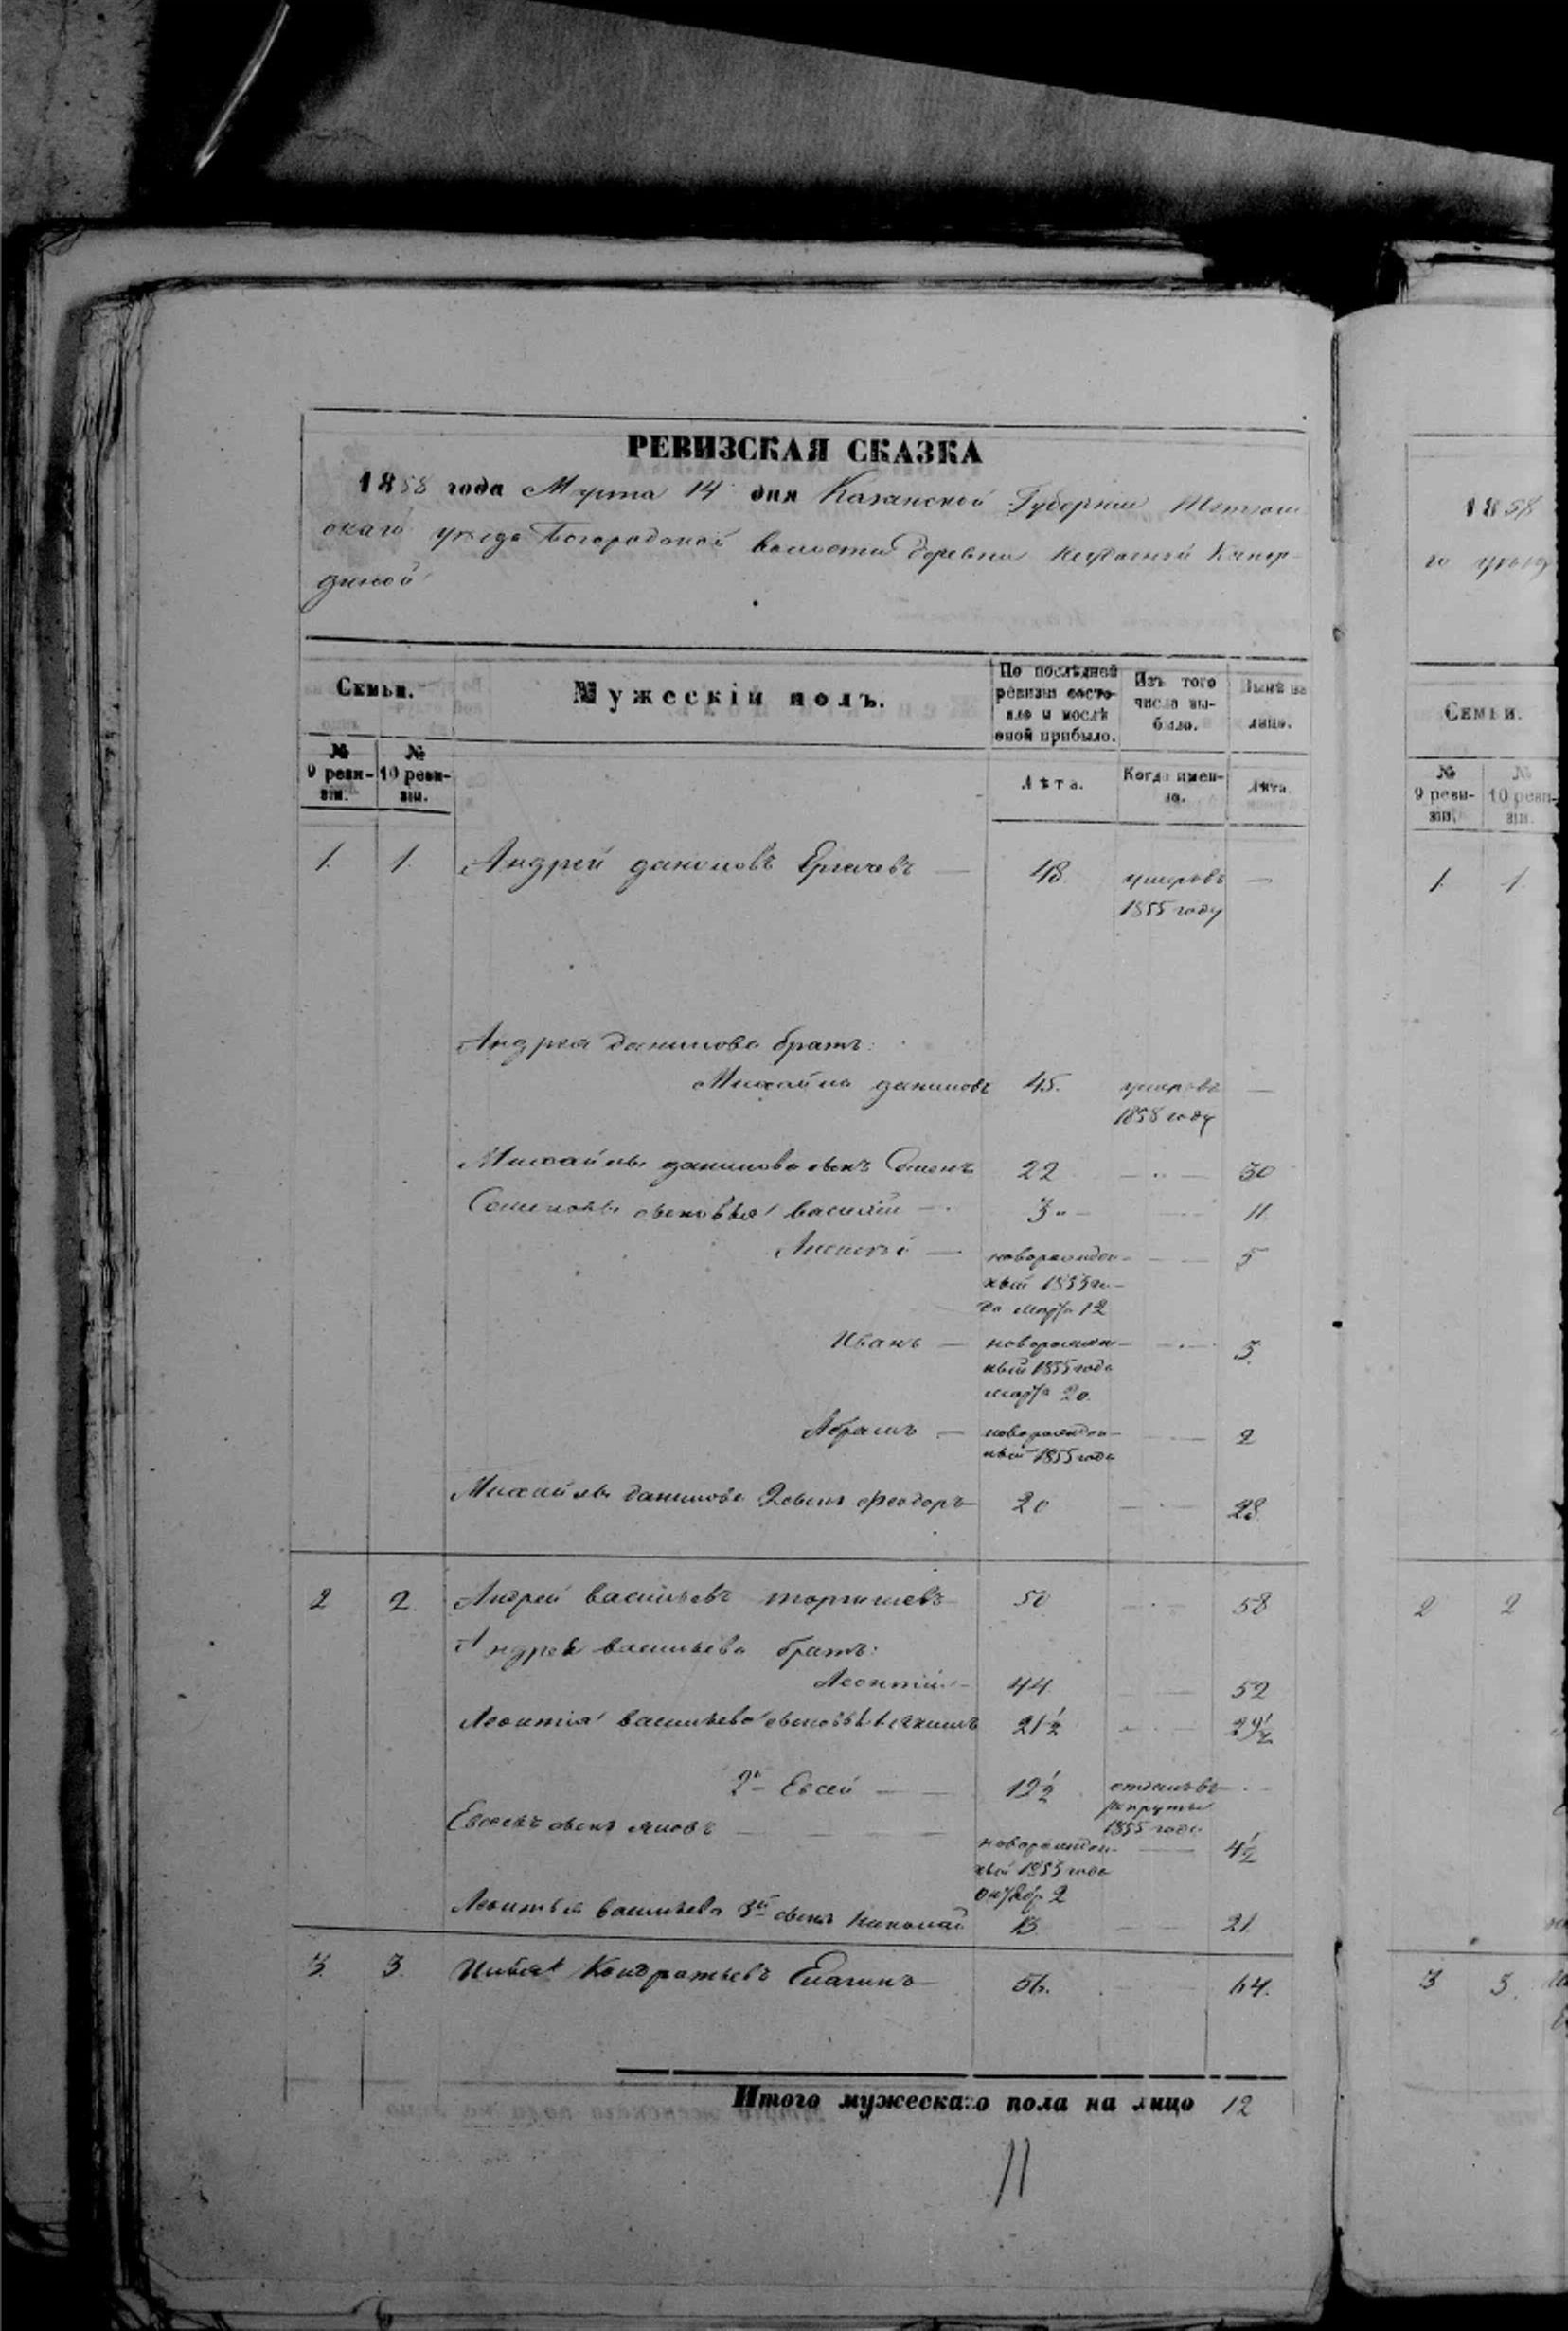 РЕВИЗСКАЯ СКАЗКА
1858 года Марта 14 дня Казанской Губернiи Тетюш
скаго уѣзда Богородской волости Деревни
Семьи.
Мужескiй полъ.
По послѣдней ревизiи состояло и послѣ оной прибыло.
Изъ того числа выбыло.
Нынѣ на лицо.
№ 9 ревизiи.
№ 10 ревизiи.
Лѣта.
Когда именно.
Лѣта.
1. 1. Андрей даниловъ — 48. умеръ въ —
1855 году
Андрея Данилова братъ:
Михайла даниловъ 45. умеръ въ —
1858 году
Михайлы данилова сынъ Семенъ 22 — 30
Семеновы сыновья Василiй — 3 — 11.
Алексѣй — новорожден- — 5
ный 1853 го-
да марта 12
Иванъ — новорожден- — 3.
ный 1855 года
марта 20.
Абрамъ — новорожден- — 2
ный 1855 года
Михайлы данилова 2 сынъ Феодоръ 20 — 28.
2 2. Андрей васильевъ 50 — 58
Андрея васильева братъ:
Леонтiй — 44. — 52
Леонтiя васильева сыновья 1 якимъ 21½ — 29½
2й Евсей — 12½ отданъ въ —
рекруты
1855 года
Евсеевъ сынъ яковъ — новорожден- — 4½
ный 1853 года
октября 2
Леонтья васильева 3й сынъ Николай 13. — 21.
3. 3. Кондратьевъ Елагинъ — 56. — 64.
Итого мужескаго пола на лицо 12
11
1858
го уѣзд
Семьи.
№ 9 ревизiи.
№ 10 ревизiи.
1. 1.
2 2
3 3.